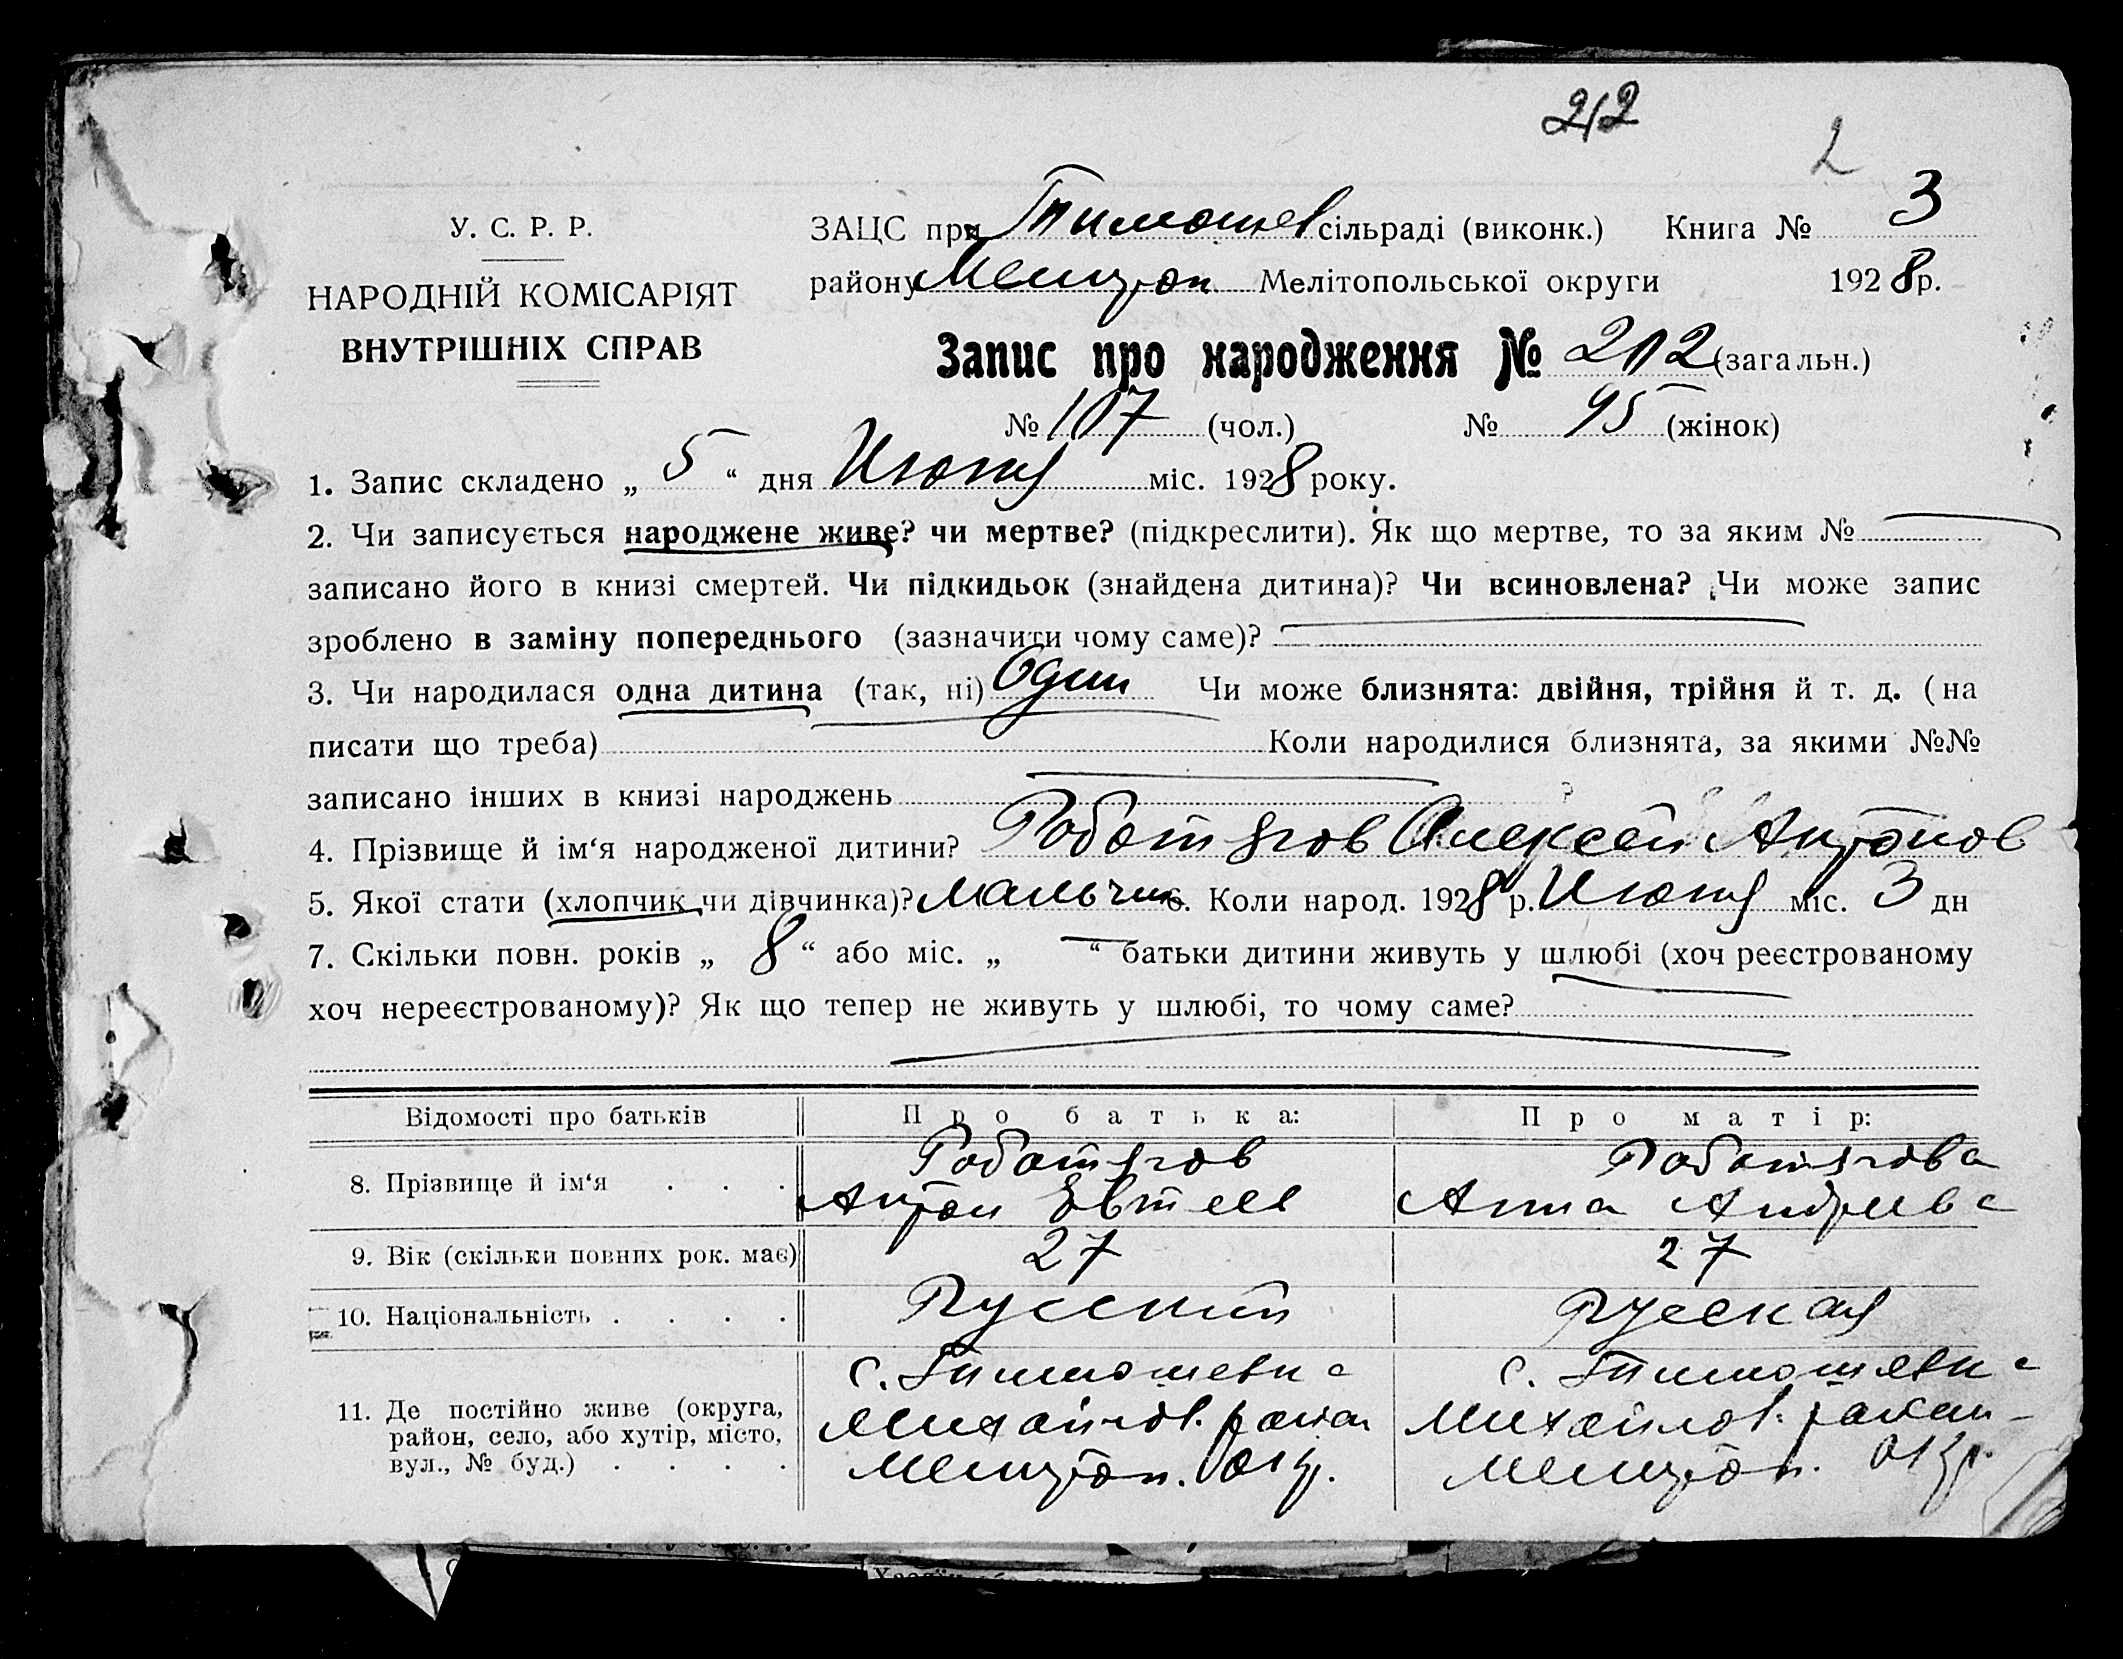 212
2
У. С. Р. Р.
НАРОДНІЙ КОМІСАРІЯТ
ВНУТРІШНІХ СПРАВ
ЗАЦС при Тимошев сільраді (виконк.) Книга № 3
району Мелитоп Мелітопольської округи 1928 р.
Запис про народження № 212 (загальн.)
№ 117 (чол.) № 95 (жінок)
1. Запис складено „ 5 “ дня Июня міс. 1928 року.
2. Чи записується народжене живе? чи мертве? (підкреслити). Як що мертве, то за яким №
записано його в книзі смертей. Чи підкидьок (знайдена дитина)? Чи всиновлена? Чи може запис
зроблено в заміну попереднього (зазначити чому саме)?
3. Чи народилася одна дитина (так, ні) Один Чи може близнята: двійня, трійня й т. д. (на
писати що треба) Коли народилися близнята, за якими №№
записано інших в книзі народжень ?
4. Прізвище й ім‘я народженої дитини? Работягов Алексей Антонов
5. Якої стати (хлопчик чи дівчинка)? Мальчик 6. Коли народ. 1928 р. Июня міс. 3 дн
7. Скільки повн. років „ 8 “ або міс. „ “ батьки дитини живуть у шлюбі (хоч реєстрованому
хоч нереєстрованому)? Як що тепер не живуть у шлюбі, то чому саме?
Відомості про батьків Про батька: Про матір:
8. Прізвище й ім‘я Работягов Работягова
Антон Евтеев Анна Андреева
9. Вік (скільки повних рок. має) 27 27
10. Національність Русский Русская
11. Де постійно живе (округа, район, село, або хутір, місто, вул., № буд.) с. Тимошевка с. Тимошевка
Михайлов. район Михайлов. район
Мелитоп. Окр. Мелитоп. Окр.